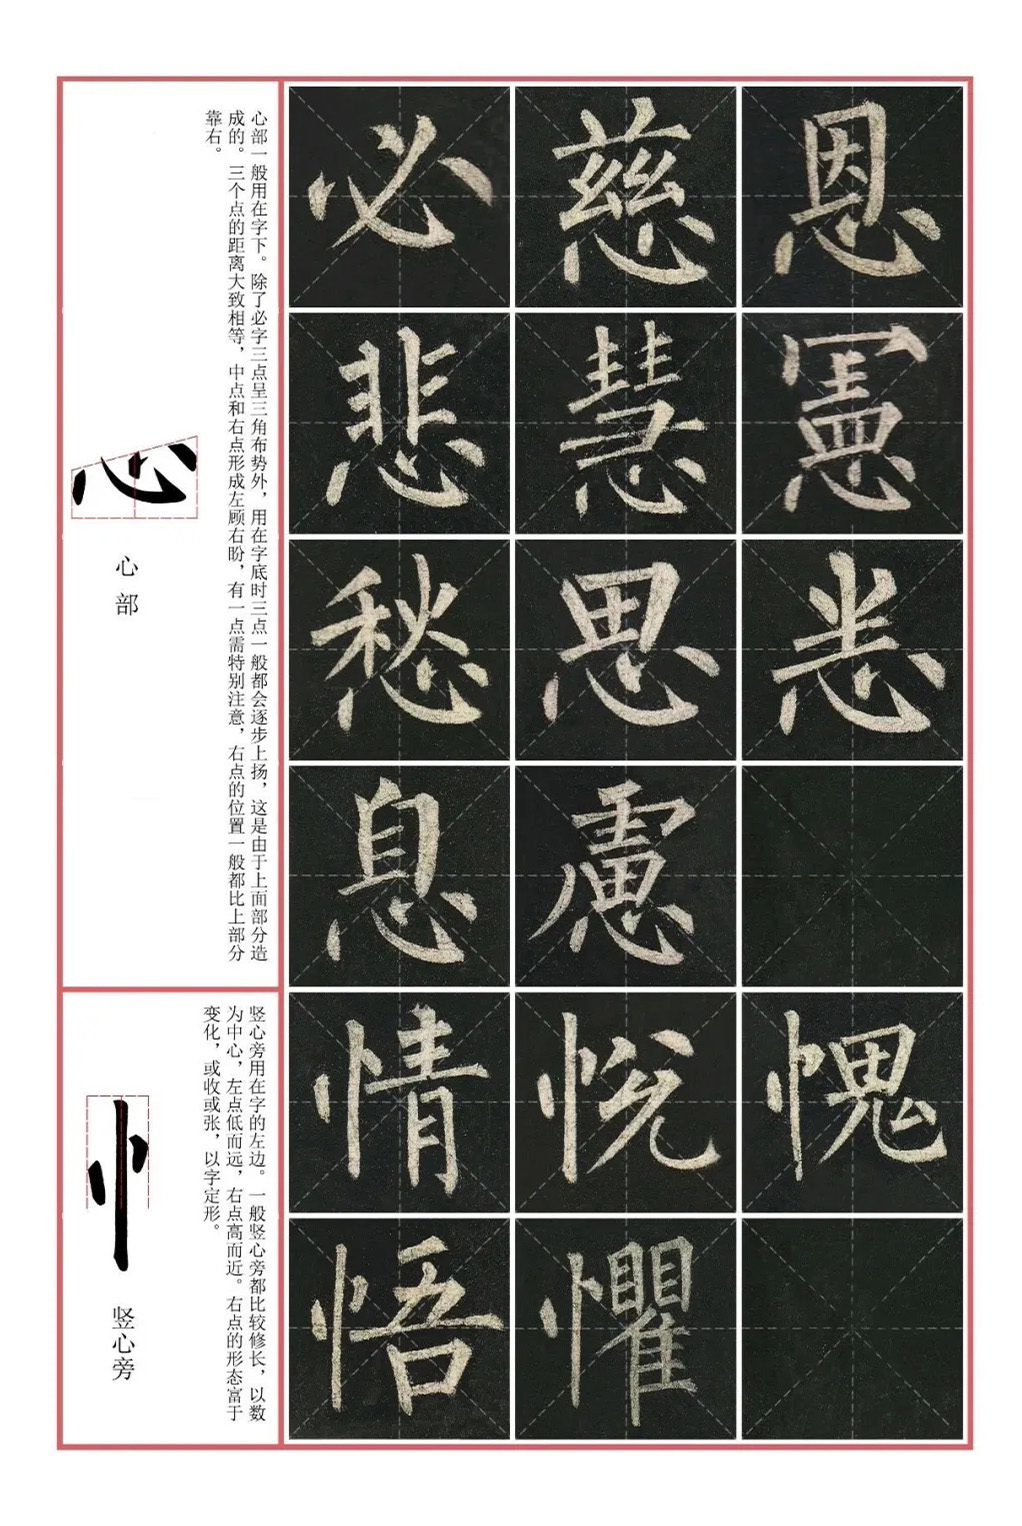 心部一般用在字下。除了必字三点呈三角布势外，用在字底时三点一般都会逐步上扬，这是由于上面部分造
成的。三个点的距离大致相等，中点和右点形成左顾右盼，有一点需特别注意，右点的位置一般都比上部分
靠右。
心部
恩
慈
必
憲
慧
悲
恙
思
愁
慮
息
竖心旁用在字的左边。一般竖心旁都比较修长，以数
为中心，左点低而远，右点高而近。右点的形态富于
变化，或收或张，以字定形。
竖心旁
愧
悦
情
懼
悟